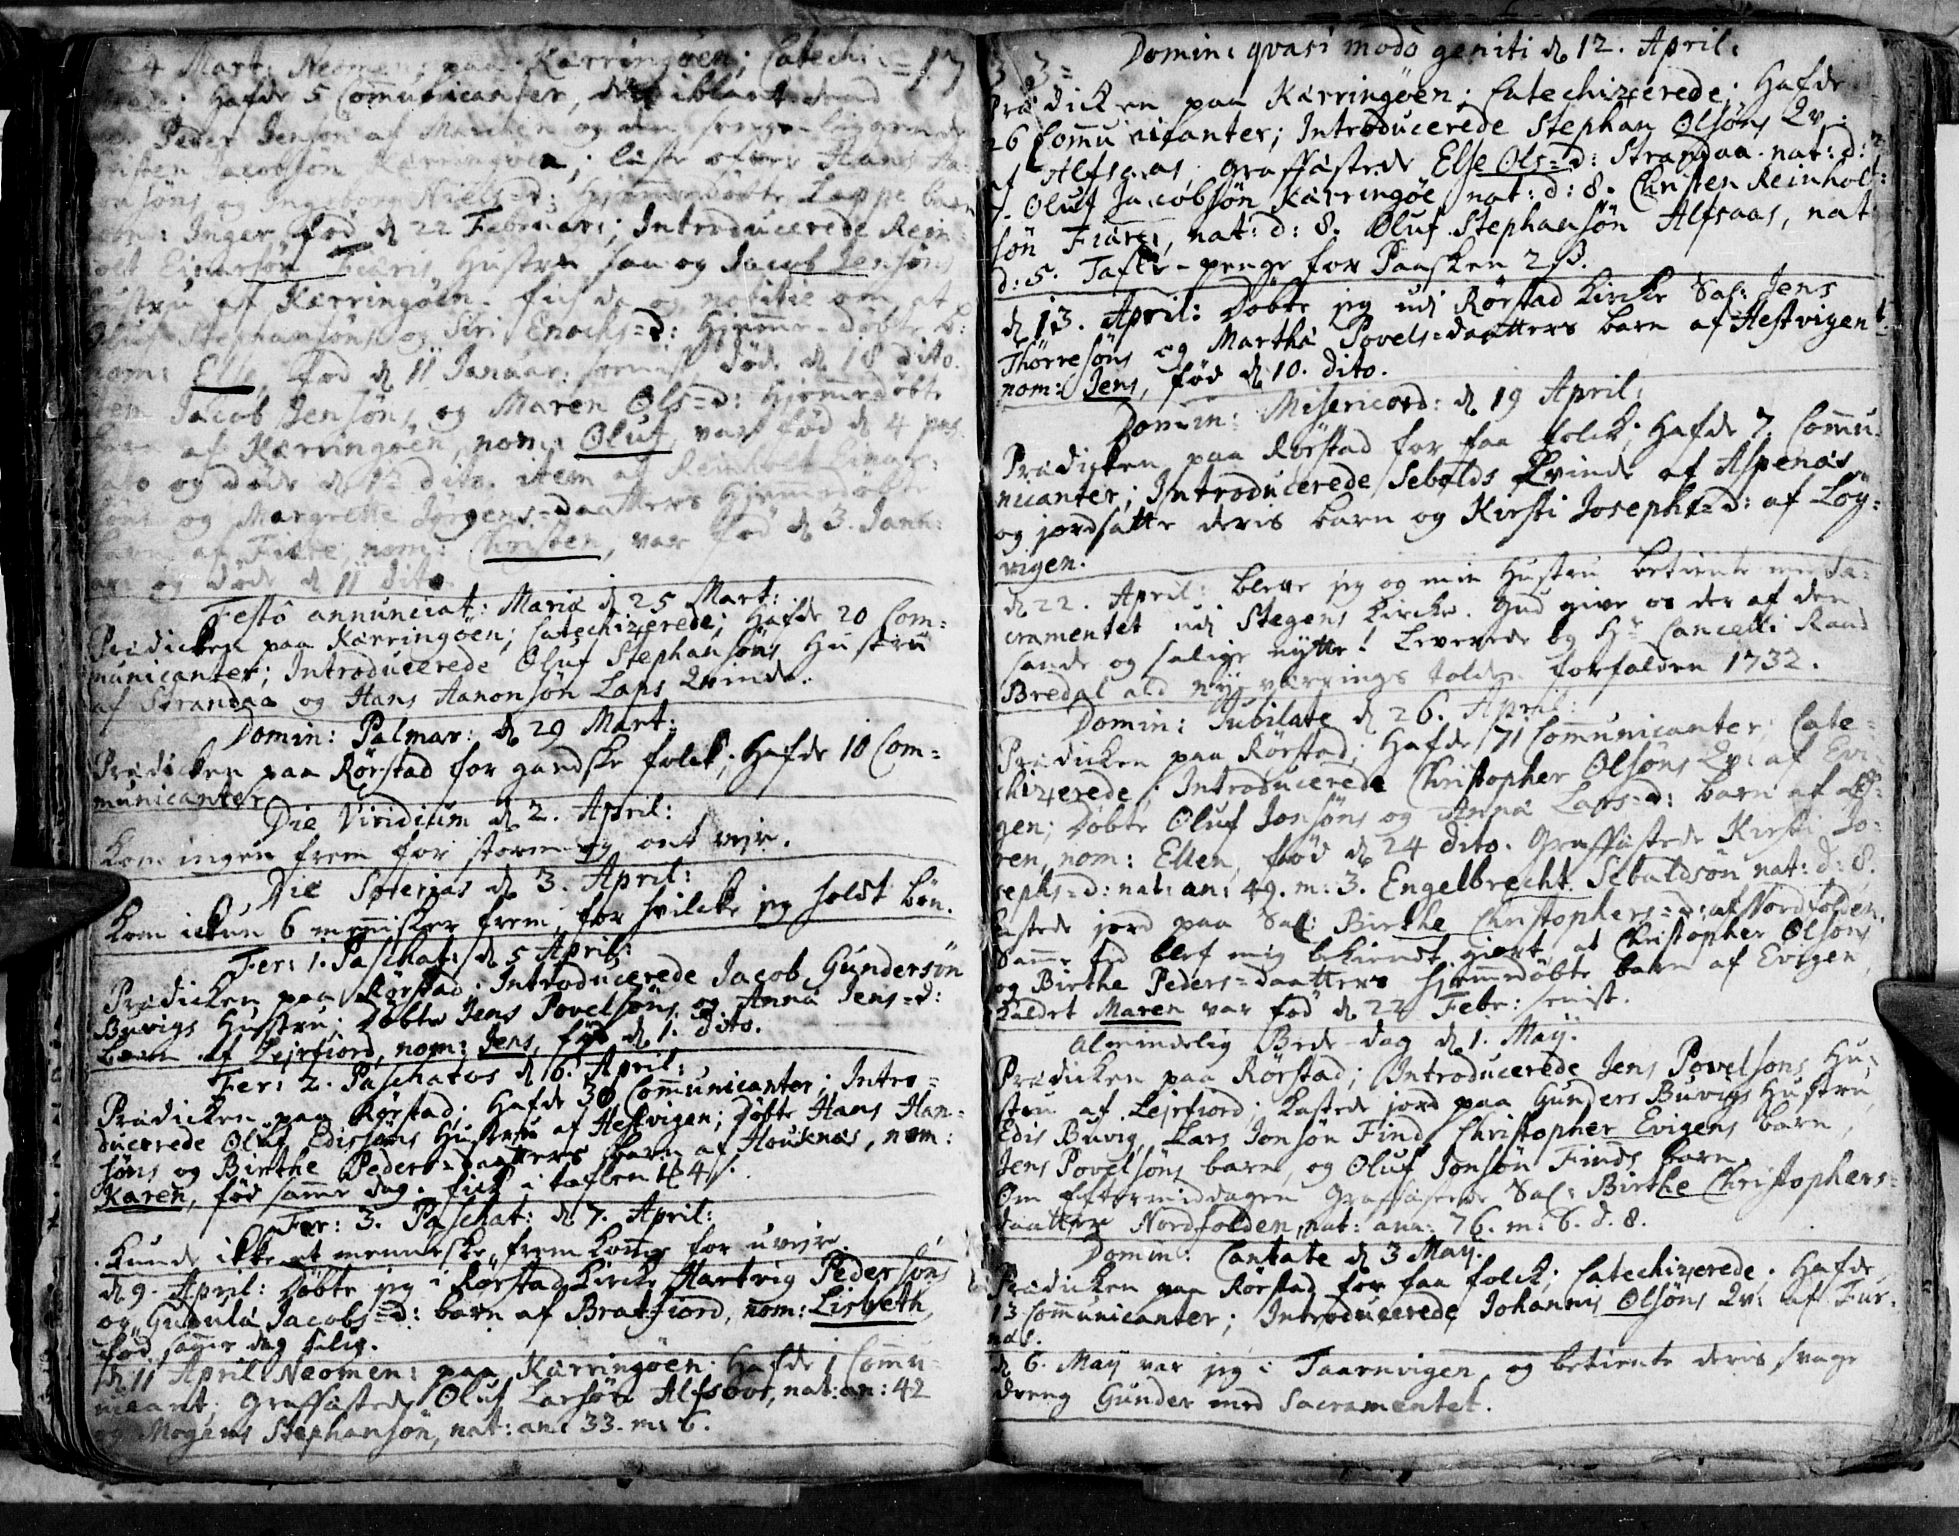 24 Mart: Neomen: paa Kærringöen; Catechi- = 17
Hafde 5 Comunicanter, der iblant
Peder Jensön af
Jacobsön Kærringöen; liuste ofver Hans Ha-
söns og Ingeborg Niels=d: hjemmedöbte Lappe barn
nom: Inger, föd d 22 Februar:; Introducerede Rein-
holt Einersön Fiæris Hustru, saa og Jacob Jensöns
Hustru af Kærringöen. fich da og notitie om, at
Oluf Stephansöns og Siri Enochs=d: hjemme-döbte b:
nom: Else, föd d 11 Januar: döde d 18 dito.
item Jacob Jensöns og Maren Ols=d: hjemmedöbte
barn af Kærringöen, nom: Oluf, var föd d 4 pas-
sato og döde d 12 dito. item at Reinholt Einer-
söns og Margrethe Jörgens=daatters hjemmedöbte
barn af Fiære, nom: Christen, var föd d 3. Janu-
ari og döde d 11 dito.
Festo annunciat: Mariæ d 25 Mart:
Prædicken paa Kærringöen; Catechizerede; Hafde 20 Com=
municanter; Introducerede Oluf Stephansöns Hustru
af Strandaa og Hans Aanonsön Laps Qvinde.
Domin: Palmar: d 29 Mart:
Prædicken paa Rörstad for gandske folck; Hafde 10 Com=
municanter
Die Viridium d 2. April:
Kom ingen frem for storm og ont vejr.
Die Soterias d 3. April:
Kom ickun 6 mennisker frem, for hvilcke jeg holdt bön.
Fer: 1. Paschat: d 5 April:
Prædicken paa Rörstad; Introducerede Jacob Gundersön
Buvigs Hustru; Döbte Jens Povelsöns og Anna Jens=d:
barn af Lejrfiord, nom: Jens, föd d 1. dito.
Fer: 2. Paschatos d 6. April:
Prædicken paa Rörstad; Hafde 30 Communicanter; Intro=
ducerede Oluf Edissöns Hustru af Hestvigen; Döbte Hans Han=
söns og Birthe Peders=daatters barn af Houknæs, nom:
Karen, föd samme dag. fich i taflen
Fer: 3. Paschat: d 7. April:
Kunde ikke et menneske frem komme for uvejr.
d 9. April: Döbte jeg i Rörstad Kircke Hartvig Pedersöns
og Gudula Jacobs=d: barn af Bratfiord, nom: Lisbeth,
föd samme dag
d 11 April Neomen: paa Kærringöen; Hafde 1 Commu-
nicant; Graffastede Oluf Larsön Alfsoor, nat: an: 42
og Mogens Stephansön, nat: an: 33. m: 6.
Domin: qvasi modo geniti d 12. April:
Prædicken paa Kærringöen; Catechizerede; Hafde
26 Communicanter; Introducerede Stephan Olsöns Qv:
af Alfsaas; Graffastede Else Ols=d: Strandaa nat: d:
Oluf Jacobsön Kærringöe nat: d: 8. Christen Reinholt-
sön Fiære, nat: d: 8. Oluf Stephansön Alfsaas, nat:
d: 5. Tafle-penge for Paasken 2
d 13. April: Döbte jeg udi Rörstad Kircke Sal: Jens
Thörresöns og Martha Povels-daatters barn af Hestvigen
nom: Jens, föd d 10. dito.
Domin: Misericord: d 19 April:
Prædicken paa Rörstad for faa folck; Hafde 7 Commu-
nicanter; Introducerede Sebalds Qvinde af Aspenæs,
og jordsatte deris barn og Kirsti Josephs=d: af Löy-
vigen.
d 22. April: bleve jeg og min Hustru betiente med Sa-
cramentet udi Stegens Kircke. Gud give os der af den
sande og salige nytte! Leverede og Hr Cancelli Raad
Bredal ald nu værrings tolden forfalden 1732.
Domin: Jubilate d 26. April:
Prædicken paa Rörstad; Hafde 71 Communicanter; Cate=
chizerede; Introducerede Christopher Olsöns Qv: af Evi-
gen; Döbte Oluf Jonsöns og Anna Lars=d: barn af
nom: Ellen, föd d 24 dito. Graffastede Kirsti Jo-
sephs=d: nat: an: 49. m: 3. Engelbrecht Sebaldsön nat: d: 8.
Kastede jord paa Sal: Birthe Christophers=d: af Nordfolden.
Samme tid blef mig bekiendt giort at Christopher Olsöns
og Birthe Peders=daatters hjemmedöbte barn af Evigen,
kaldet Maren var föd d 22 Febr: senist.
Almindelig Bede-dag d 1. May.
Prædicken paa Rörstad; Introducerede Jens Povelsöns Hu-
stru af Lejrfiord; Kastede jord paa Gunders Buvigs Hustru,
Edis Buvig, Lars Jonsön Find, Christopher Evigens barn,
Jens Povelsöns barn, og Oluf Jonsön Finds barn.
Om Eftermiddagen Graffastede Sal: Birthe Christophers=
daatter Nordfolden, nat: ann: 76. m: 6. d. 8.
Domin: Cantate d 3 May.
Prædicken paa Rörstad for faa folck; Catechizerede; Hafde
13 Communicanter; Introducerede Johannis Olsöns Qv: af Fur-
næs.
d 6. May var jeg i Taarnvigen og betiente deris svage
dreng Gunder med Sacramentet.